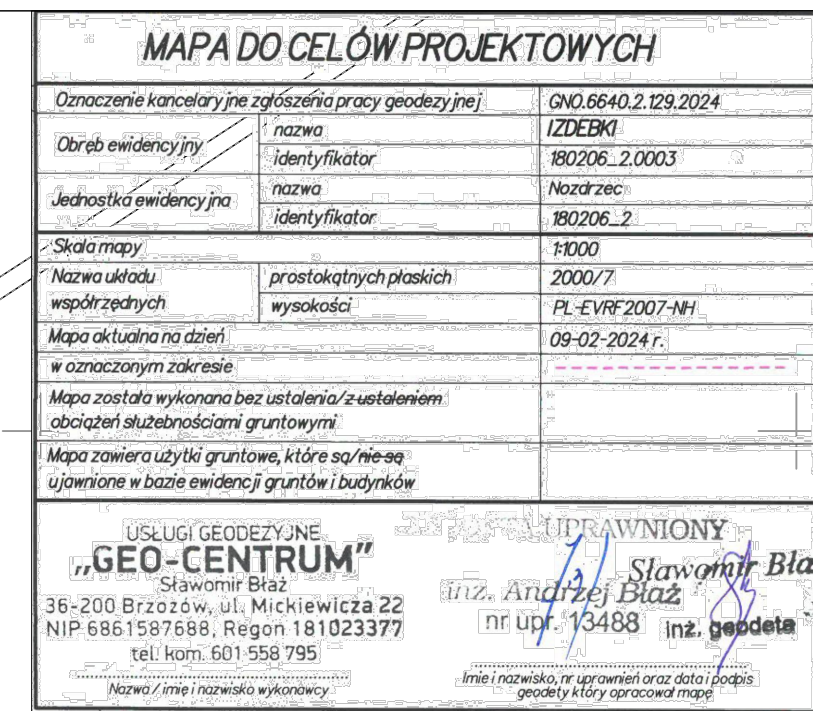 MAPA DO CELÓW PROJEKTOWYCH
Oznaczenie kancelaryjne zgłoszenia pracy geodezyjnej GNO.6640.2.129.2024
Obręb ewidencyjny nazwa IZDEBKI
identyfikator 180206_2.0003
Jednostka ewidencyjna nazwa Nozdrzec
identyfikator 180206_2
Skala mapy 1:1000
Nazwa układu współrzędnych prostokątnych płaskich 2000/7
wysokości PL-EVRF2007-NH
Mapa aktualna na dzień 09-02-2024 r.
w oznaczonym zakresie
Mapa została wykonana bez ustalenia/z ustaleniem
obciążeń służebnościami gruntowymi
Mapa zawiera użytki gruntowe, które są/nie są
ujawnione w bazie ewidencji gruntów i budynków
USŁUGI GEODEZYJNE
„GEO-CENTRUM"
Sławomir Błaż
36-200 Brzozów, ul. Mickiewicza 22
NIP 6861587688, Regon 181023377
tel. kom. 601 558 795
Nazwa / imię i nazwisko wykonawcy
UPRAWNIONY
Sławomir
inż. Andrzej Błaż
nr upr. 13488
inż. geodeta
Imię i nazwisko, nr uprawnień oraz data i podpis
geodety który opracował mapę